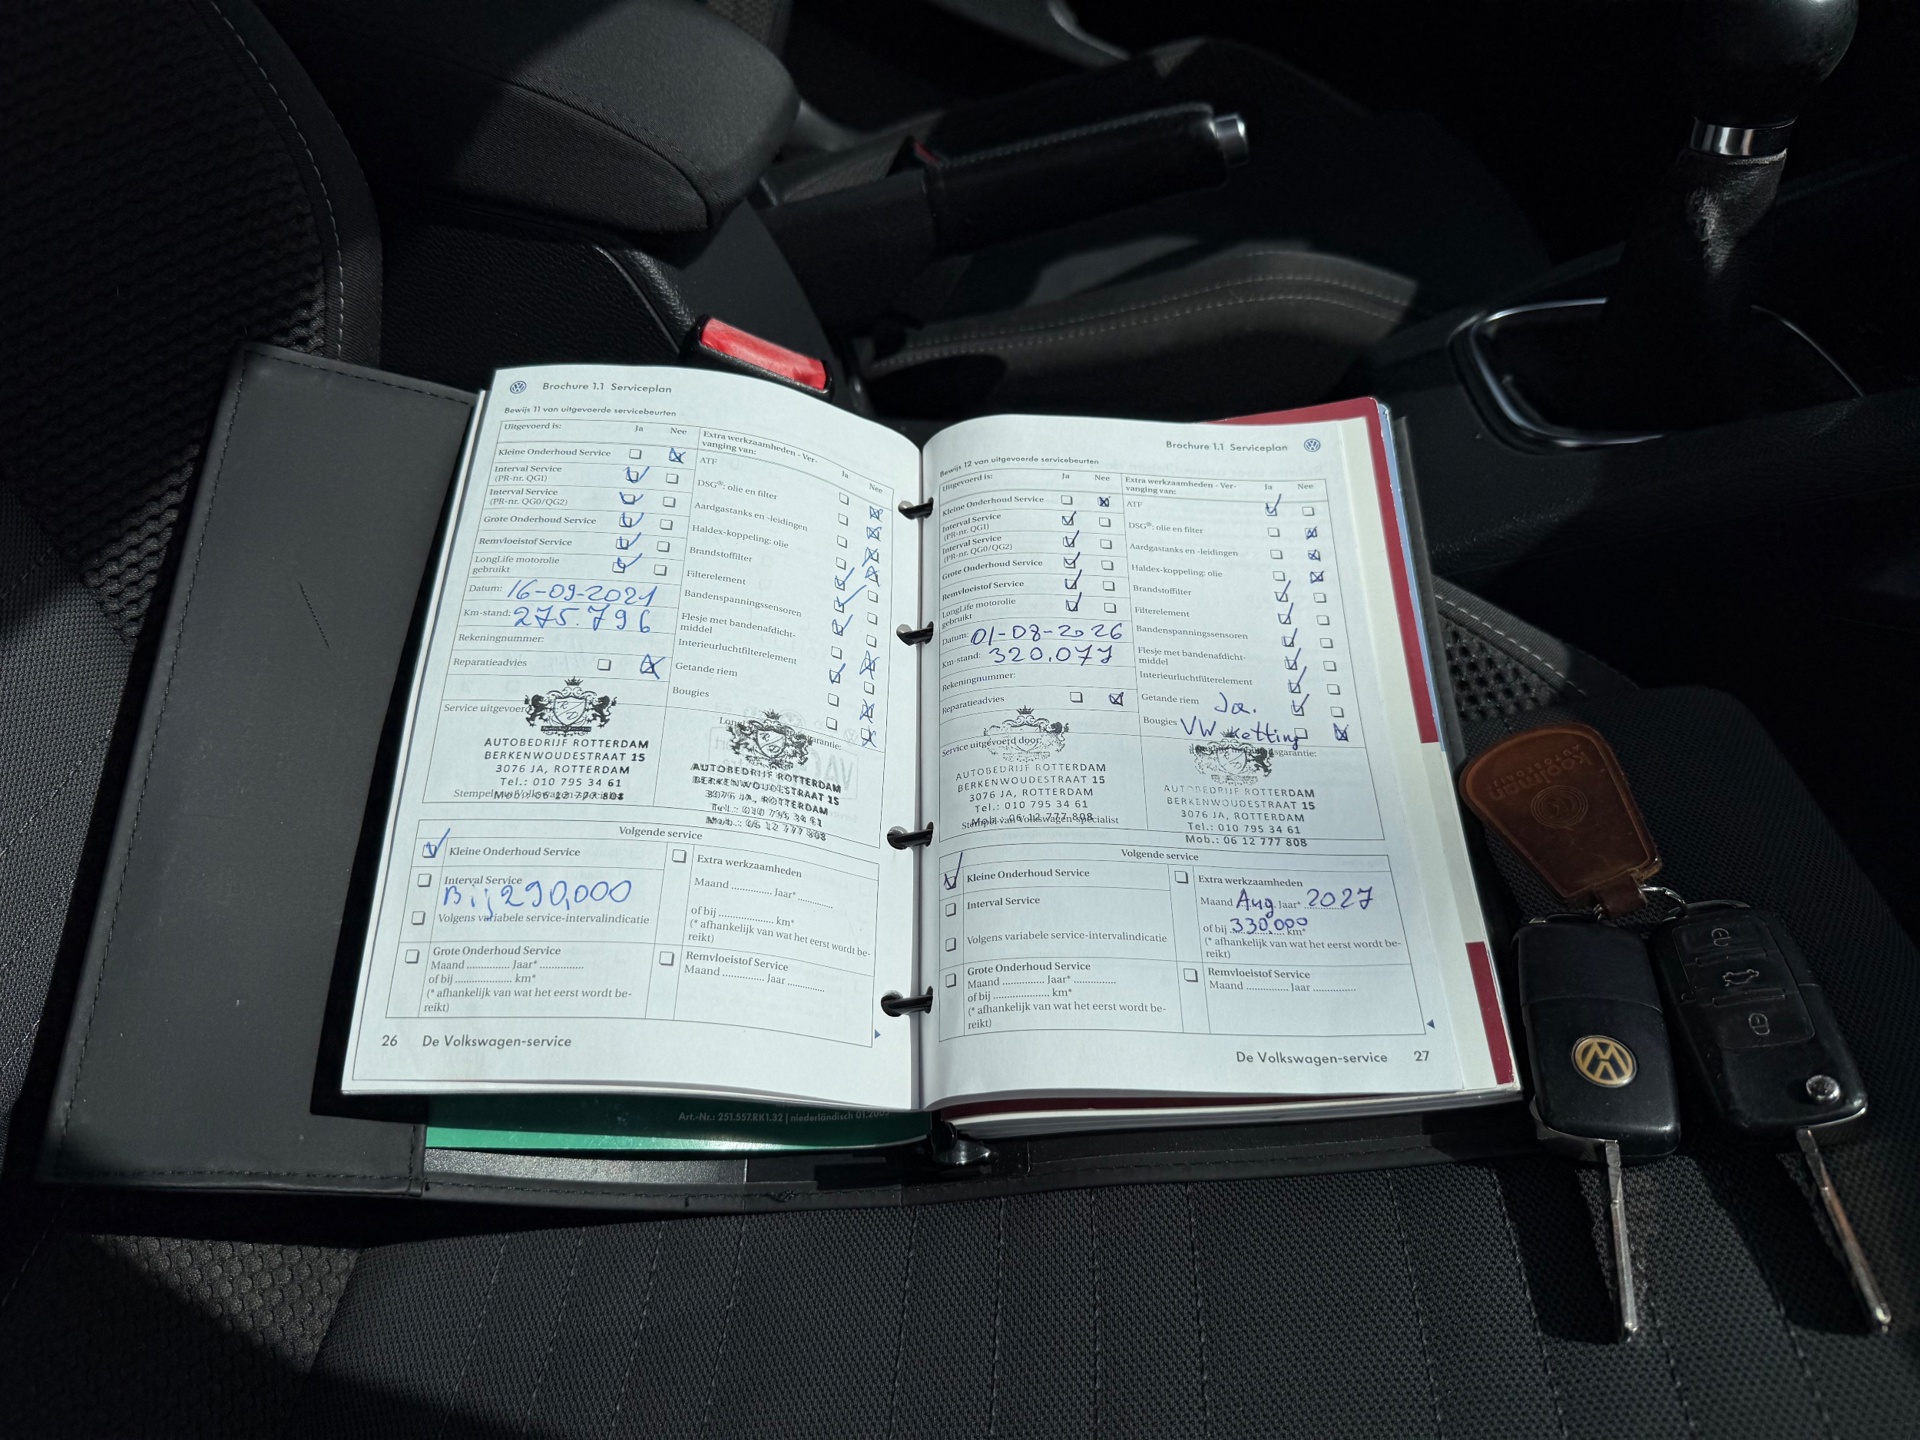 Brochure 1.1 Serviceplan
Bewijs 11 van uitgevoerde servicebeurten
Uitgevoerd is: Ja Nee
Kleine Onderhoud Service
Interval Service
(PR-nr. QG1)
Interval Service
(PR-nr. QG0/QG2)
Grote Onderhoud Service
Remvloeistof Service
LongLife motorolie
gebruikt
Datum: 16-09-2021
Km-stand: 275.796
Rekeningnummer:
Reparatieadvies
Extra werkzaamheden - Ver-
vanging van: Ja Nee
ATF
DSG®: olie en filter
Aardgastanks en -leidingen
Haldex-koppeling: olie
Brandstoffilter
Filterelement
Bandenspanningssensoren
Flesje met bandenafdicht-
middel
Interieurluchtfilterelement
Getande riem
Bougies
Service uitgevoerd
AUTOBEDRIJF ROTTERDAM
BERKENWOUDESTRAAT 15
3076 JA, ROTTERDAM
Tel.: 010 795 34 61
Mob.: 06 12 777 808
AUTOBEDRIJF ROTTERDAM
BERKENWOUDESTRAAT 15
3076 JA, ROTTERDAM
Tel.: 010 795 34 61
Mob.: 06 12 777 808
Volgende service
Kleine Onderhoud Service
Interval Service
Bij 290,000
Volgens variabele service-intervalindicatie
Grote Onderhoud Service
Maand .............. Jaar* ..............
of bij ..................... km*
(* afhankelijk van wat het eerst wordt be-
reikt)
Extra werkzaamheden
Maand ............. Jaar* ............
of bij ..................... km*
(* afhankelijk van wat het eerst wordt be-
reikt)
Remvloeistof Service
Maand .............. Jaar ..............
26 De Volkswagen-service
Art.-Nr.: 251.557.RK1.32 | niederländisch 01.2005
Brochure 1.1 Serviceplan
Bewijs 12 van uitgevoerde servicebeurten
Uitgevoerd is: Ja Nee
Kleine Onderhoud Service
Interval Service
(PR-nr. QG1)
Interval Service
(PR-nr. QG0/QG2)
Grote Onderhoud Service
Remvloeistof Service
LongLife motorolie
gebruikt
Datum: 01-08-2026
Km-stand: 320.077
Rekeningnummer:
Reparatieadvies
Extra werkzaamheden - Ver-
vanging van: Ja Nee
ATF
DSG®: olie en filter
Aardgastanks en -leidingen
Haldex-koppeling: olie
Brandstoffilter
Filterelement
Bandenspanningssensoren
Flesje met bandenafdicht-
middel
Interieurluchtfilterelement
Getande riem Ja.
Bougies VW ketting
Service uitgevoerd door:
AUTOBEDRIJF ROTTERDAM
BERKENWOUDESTRAAT 15
3076 JA, ROTTERDAM
Tel.: 010 795 34 61
Mob.: 06 12 777 808
Stempel van Volkswagen-specialist
AUTOBEDRIJF ROTTERDAM
BERKENWOUDESTRAAT 15
3076 JA, ROTTERDAM
Tel.: 010 795 34 61
Mob.: 06 12 777 808
Volgende service
Kleine Onderhoud Service
Interval Service
Volgens variabele service-intervalindicatie
Grote Onderhoud Service
Maand .............. Jaar* ..............
of bij ..................... km*
(* afhankelijk van wat het eerst wordt be-
reikt)
Extra werkzaamheden
Maand Aug. Jaar* 2027
of bij 330.000 km*
(* afhankelijk van wat het eerst wordt be-
reikt)
Remvloeistof Service
Maand .............. Jaar ..............
De Volkswagen-service 27